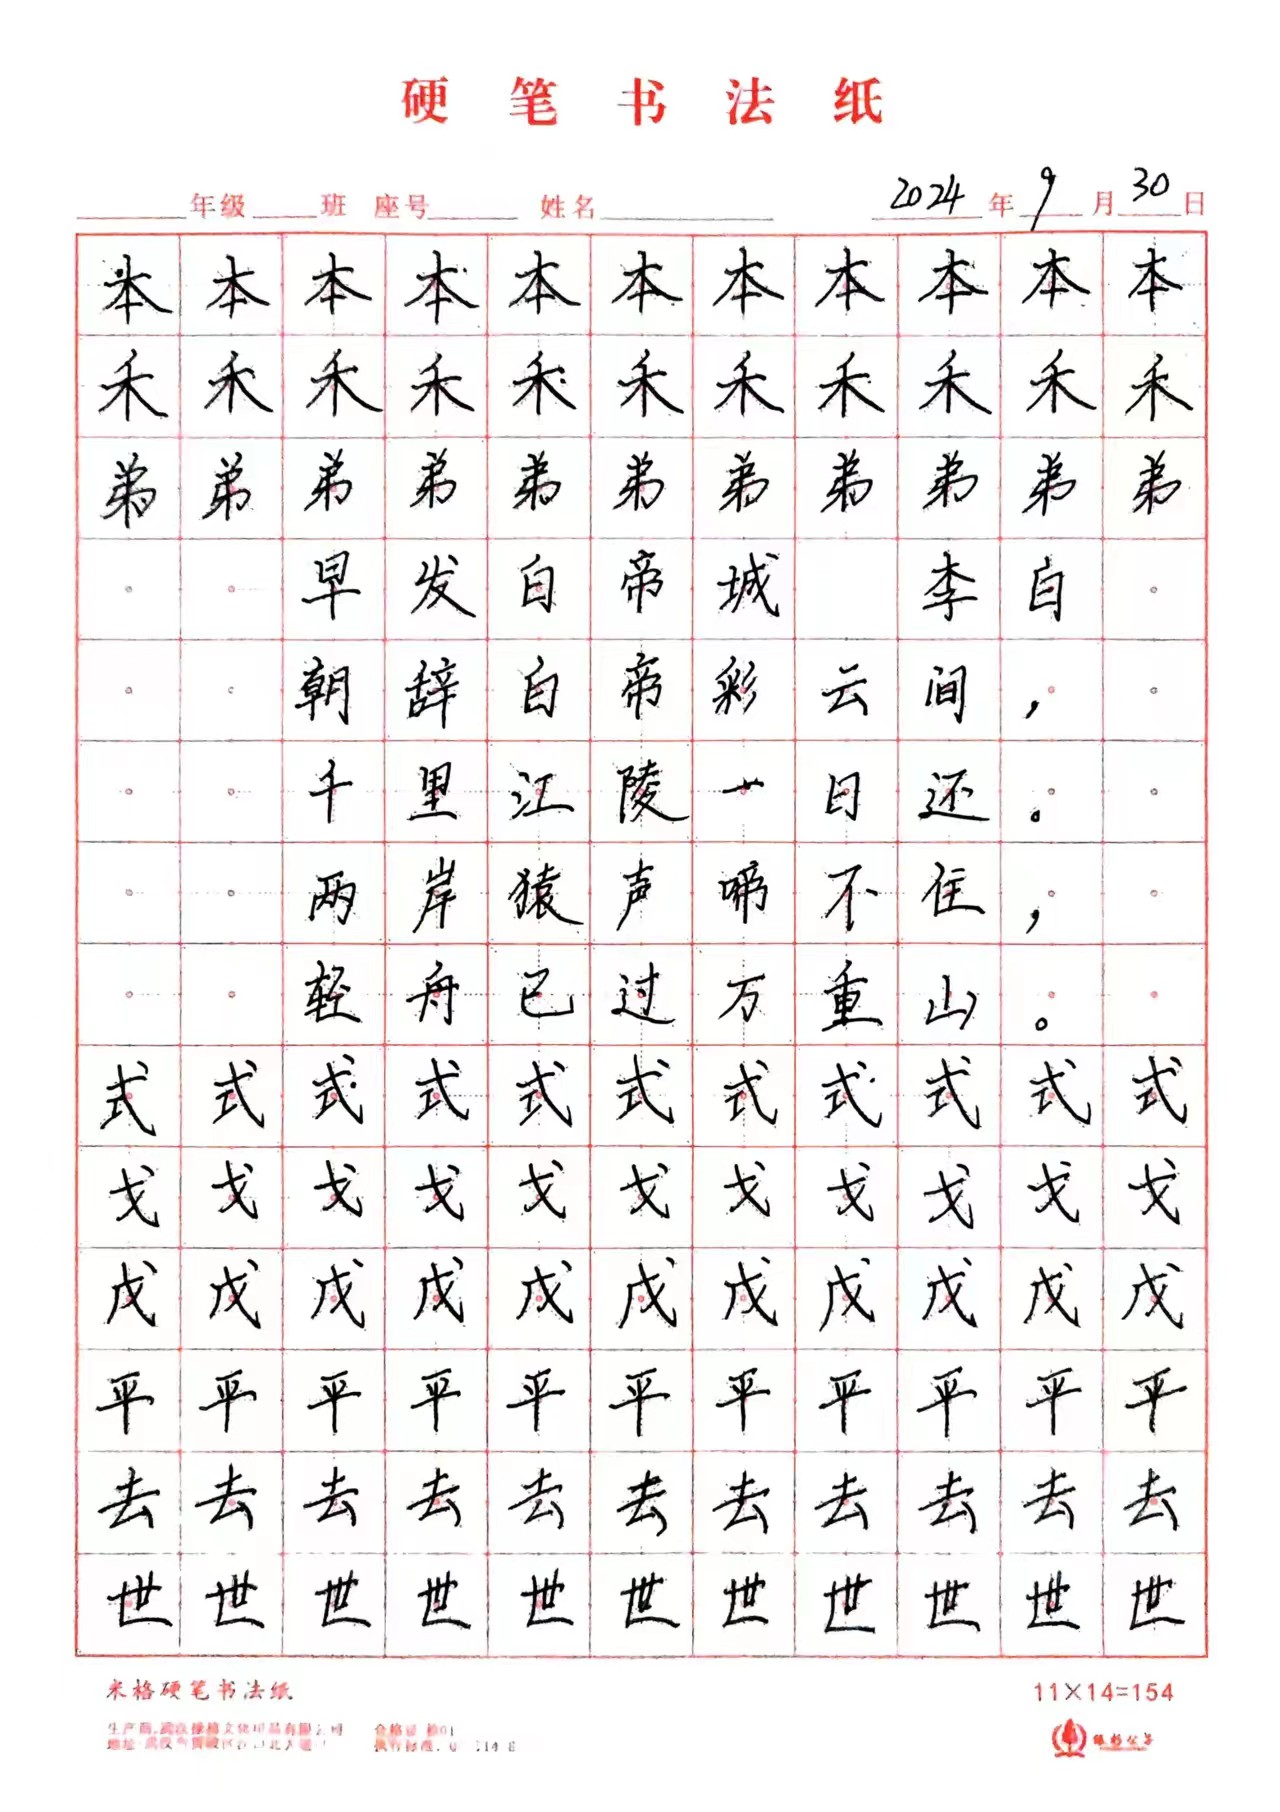 硬笔书法纸
年级 班 座号 姓名 2024年9月30日
本本本本本本本本本本本
禾禾禾禾禾禾禾禾禾禾禾
弟弟弟弟弟弟弟弟弟弟弟
早发白帝城 李白
朝辞白帝彩云间，
千里江陵一日还。
两岸猿声啼不住，
轻舟已过万重山。
式式式式式式式式式式式
戈戈戈戈戈戈戈戈戈戈戈
戊戊戊戊戊戊戊戊戊戊戊
平平平平平平平平平平平
去去去去去去去去去去去
世世世世世世世世世世世
米格硬笔书法纸 11×14=154
生产商
地址
执行标准